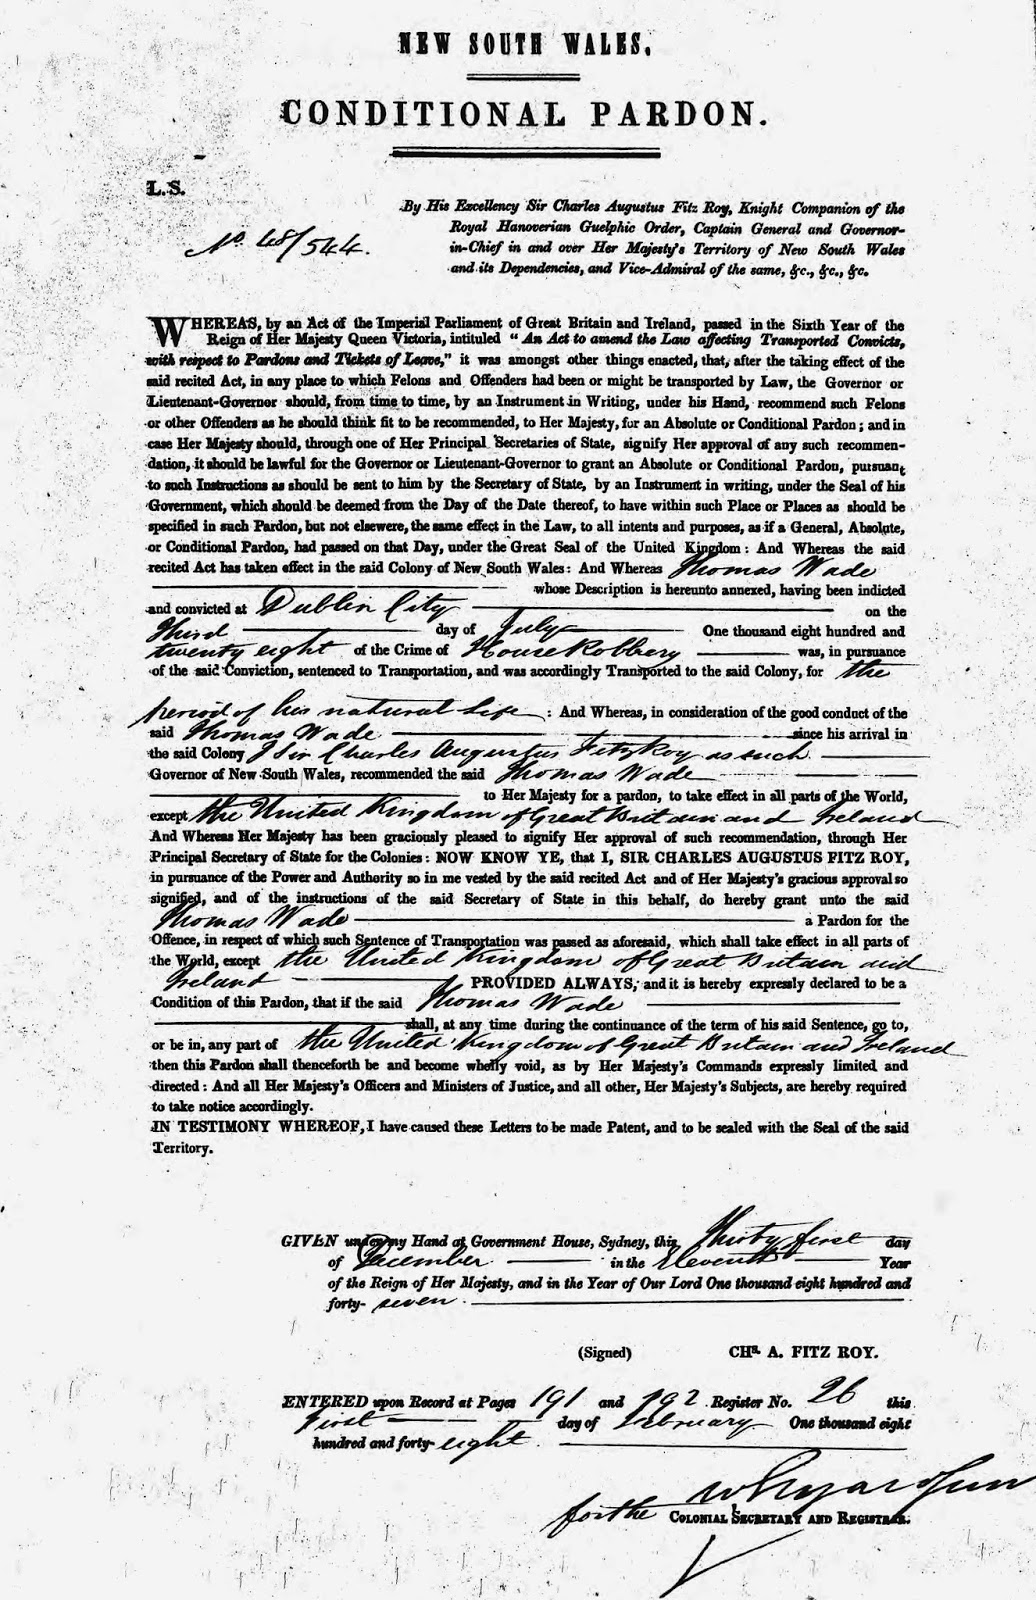 NEW SOUTH WALES.
CONDITIONAL PARDON.
L.S.
By His Excellency Sir Charles Augustus Fitz Roy, Knight Companion of the
Royal Hanoverian Guelphic Order, Captain General and Governor-
in-Chief in and over Her Majesty's Territory of New South Wales
and its Dependencies, and Vice-Admiral of the same, &c., &c., &c.
No. 48/544.
WHEREAS, by an Act of the Imperial Parliament of Great Britain and Ireland, passed in the Sixth Year of the
Reign of Her Majesty Queen Victoria, intituled "An Act to amend the Law affecting Transported Convicts,
with respect to Pardons and Tickets of Leave," it was amongst other things enacted, that, after the taking effect of the
said recited Act, in any place to which Felons and Offenders had been or might be transported by Law, the Governor or
Lieutenant-Governor should, from time to time, by an Instrument in Writing, under his Hand, recommend such Felons
or other Offenders as he should think fit to be recommended, to Her Majesty, for an Absolute or Conditional Pardon; and in
case Her Majesty should, through one of Her Principal Secretaries of State, signify Her approval of any such recommen-
dation, it should be lawful for the Governor or Lieutenant-Governor to grant an Absolute or Conditional Pardon, pursuant
to such Instructions as should be sent to him by the Secretary of State, by an Instrument in writing, under the Seal of his
Government, which should be deemed from the Day of the Date thereof, to have within such Place or Places as should be
specified in such Pardon, but not elsewere, the same effect in the Law, to all intents and purposes, as if a General, Absolute,
or Conditional Pardon, had passed on that Day, under the Great Seal of the United Kingdom: And Whereas the said
recited Act has taken effect in the said Colony of New South Wales: And Whereas Thomas Wade
whose Description is hereunto annexed, having been indicted
and convicted at Dublin City on the
Third day of July One thousand eight hundred and
twenty eight of the Crime of House Robbery was, in pursuance
of the said Conviction, sentenced to Transportation, and was accordingly Transported to the said Colony, for the
period of his natural Life : And Whereas, in consideration of the good conduct of the
said Thomas Wade since his arrival in
the said Colony I Sir Charles Augustus FitzRoy as such
Governor of New South Wales, recommended the said Thomas Wade
to Her Majesty for a pardon, to take effect in all parts of the World,
except the United Kingdom of Great Britain and Ireland
And Whereas Her Majesty has been graciously pleased to signify Her approval of such recommendation, through Her
Principal Secretary of State for the Colonies: NOW KNOW YE, that I, SIR CHARLES AUGUSTUS FITZ ROY,
in pursuance of the Power and Authority so in me vested by the said recited Act and of Her Majesty's gracious approval so
signified, and of the instructions of the said Secretary of State in this behalf, do hereby grant unto the said
Thomas Wade a Pardon for the
Offence, in respect of which such Sentence of Transportation was passed as aforesaid, which shall take effect in all parts of
the World, except the United Kingdom of Great Britain and
Ireland PROVIDED ALWAYS, and it is hereby expressly declared to be a
Condition of this Pardon, that if the said Thomas Wade
shall, at any time during the continuance of the term of his said Sentence, go to,
or be in, any part of the United Kingdom of Great Britain and Ireland
then this Pardon shall thenceforth be and become wholly void, as by Her Majesty's Commands expressly limited and
directed: And all Her Majesty's Officers and Ministers of Justice, and all other, Her Majesty's Subjects, are hereby required
to take notice accordingly.
IN TESTIMONY WHEREOF, I have caused these Letters to be made Patent, and to be sealed with the Seal of the said
Territory.
GIVEN under my Hand at Government House, Sydney, this Thirty first day
of December in the Eleventh Year
of the Reign of Her Majesty, and in the Year of Our Lord One thousand eight hundred and
forty-seven.
(Signed) CHs. A. FITZ ROY.
ENTERED upon Record at Pages 191 and 192 Register No. 26 this
First day of February One thousand eight
hundred and forty-eight.
for the COLONIAL SECRETARY AND REGISTRAR.